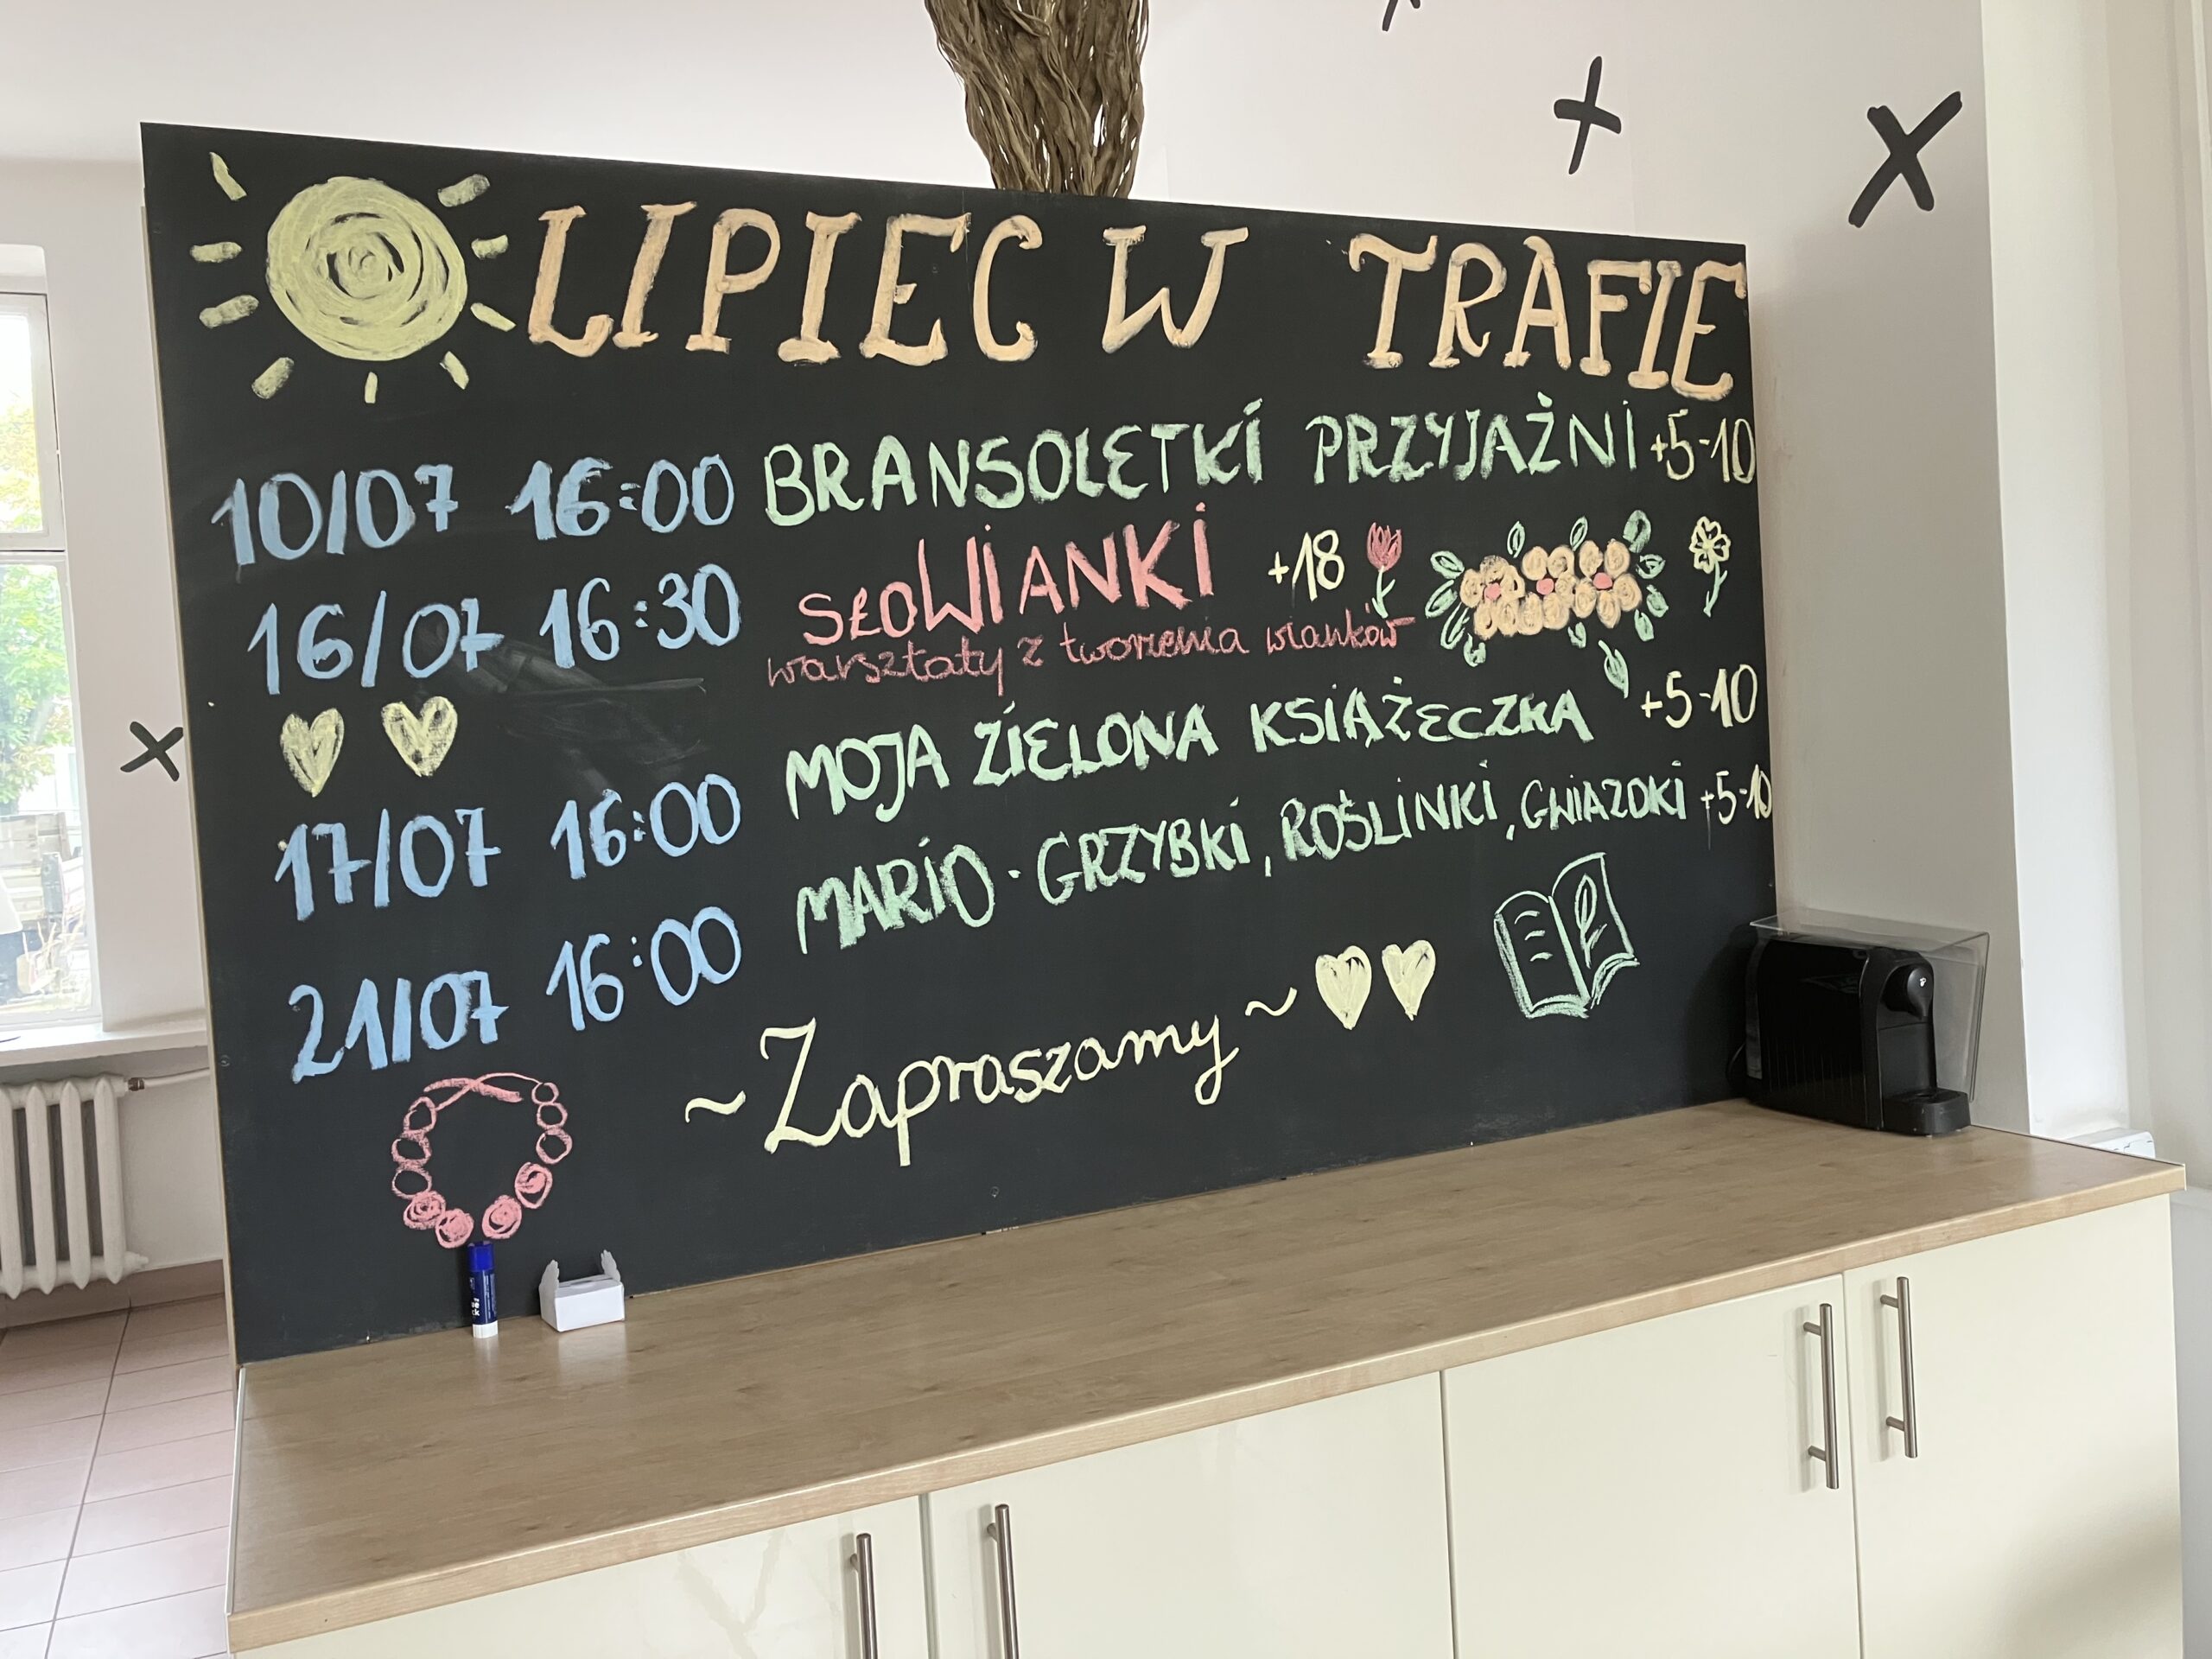 LIPIEC W TRAFIE
10/07 16:00 BRANSOLETKI PRZYJAŻNI +5-10
16/07 16:30 SŁOWIANKI +18
warsztaty z tworzenia wianków
17/07 16:00 MOJA ZIELONA KSIĄŻECZKA +5-10
21/07 16:00 MARIO - GRZYBKI, ROŚLINKI, GWIAZDKI +5-10
~Zapraszamy~